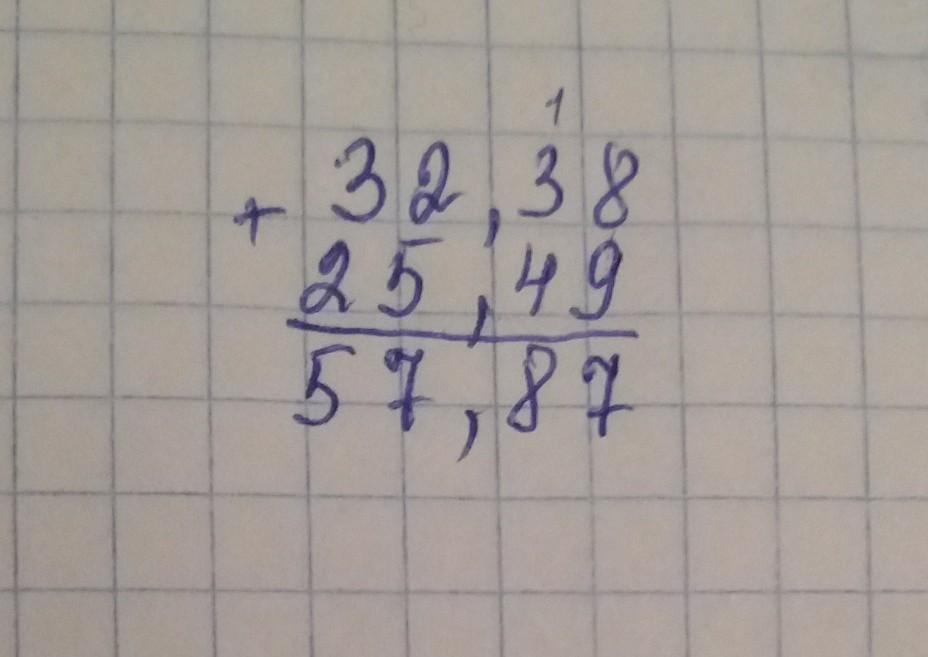 1
+ 32,38
25,49
57,87